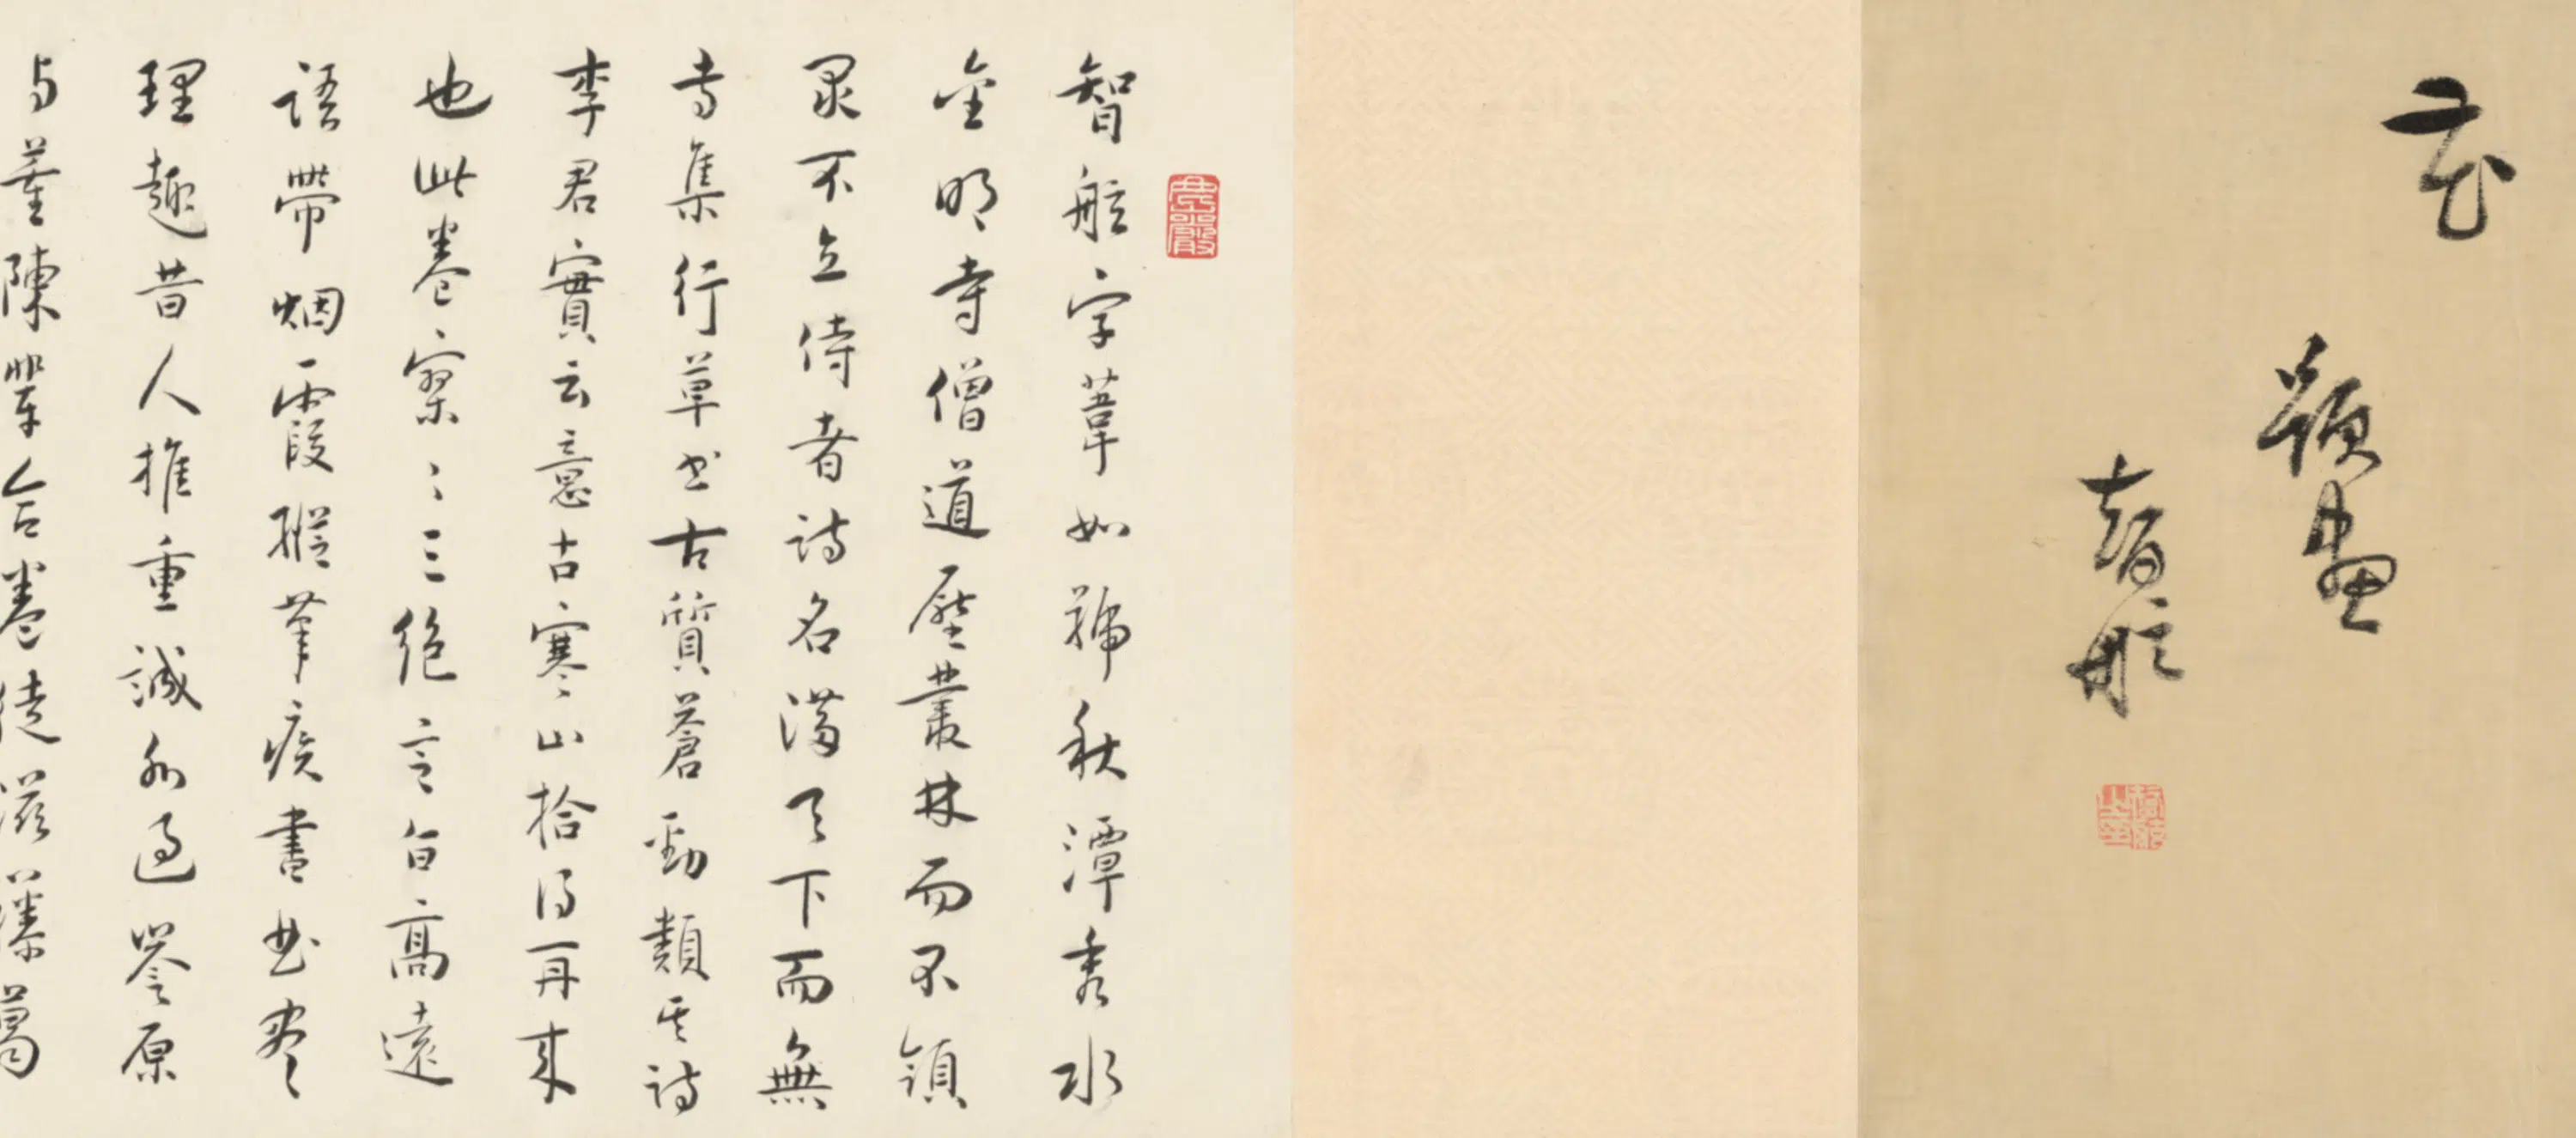 花
題畫
智舷
智舷字葦如號秋潭秀水
金明寺僧道壓叢林而不領
眾不立侍者詩名滿天下而無
專集行草書古質蒼勁類其詩
李君實云意古寒山拾得再來
也此卷寥寥三絕言旨高遠
語帶烟霞縱筆疾書曲盡
理趣昔人推重誠非過譽原
与董陳輩合卷徒滋藤葛